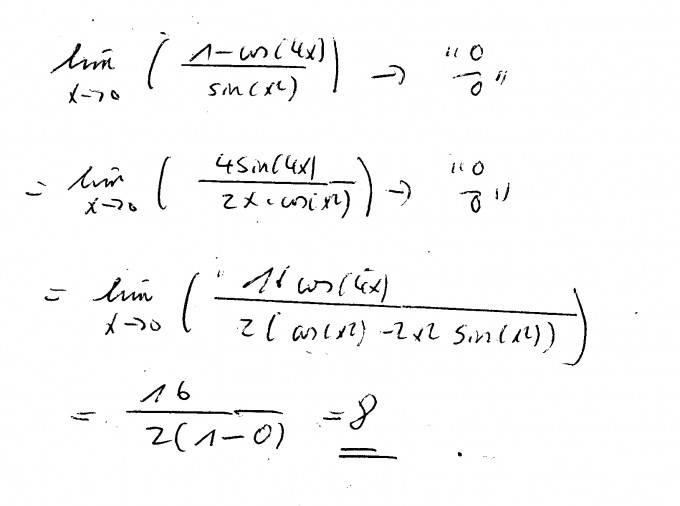 lim x→0 ( (1-cos(4x)) / sin(x²) ) → "0/0"
= lim x→0 ( 4sin(4x) / (2x·cos(x²)) ) → "0/0"
= lim x→0 ( 16 cos(4x) / (2(cos(x²) -2x² sin(x²))) )
= 16 / (2(1-0)) = 8